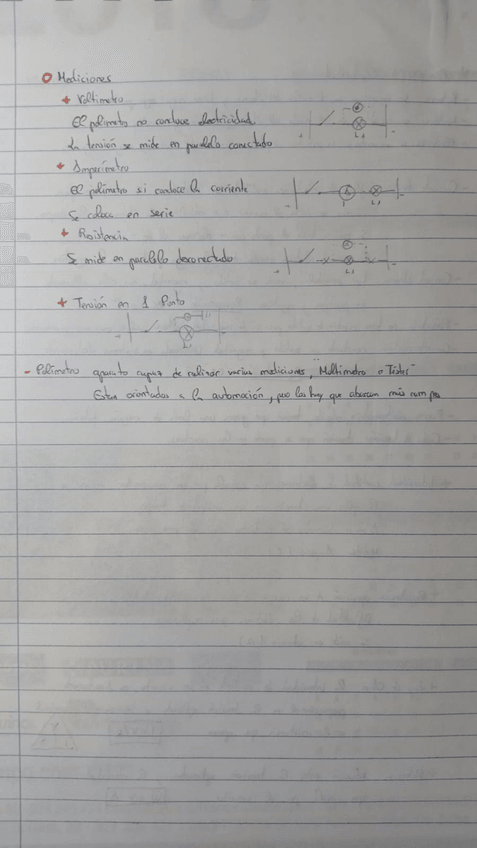 Mediciones
+ Voltímetro
El polímetro no conduce electricidad
La tensión se mide en paralelo conectado
+ Amperímetro
El polímetro si conduce la corriente
Se coloca en serie
+ Resistencia
Se mide en paralelo desconectado
+ Tensión en 1 Punto
- Polímetro aparato capaz de realizar varias mediciones, "Multímetro o Tester"
Estan orientados a la automoción, pero los hay que abarcan más campos